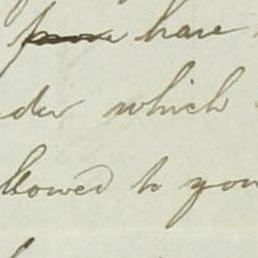 have
which
llowed to you